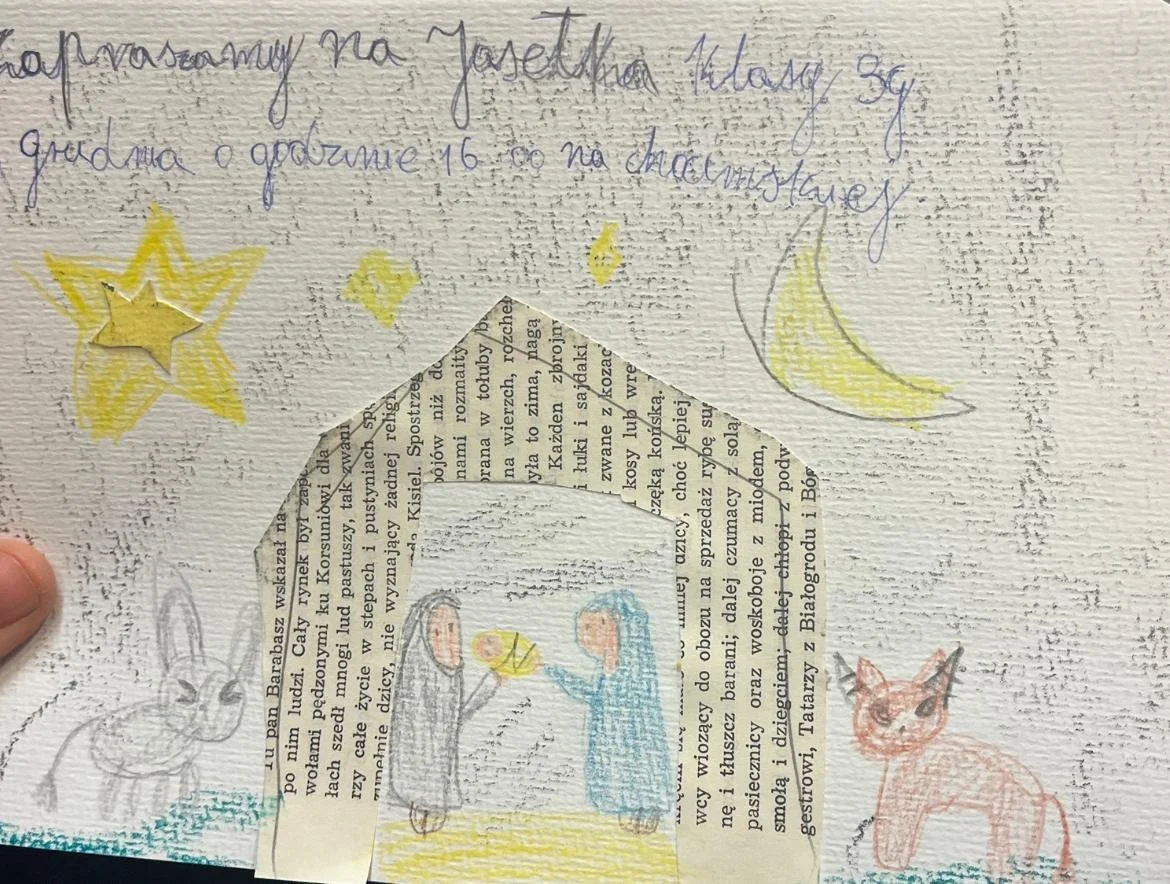 Zapraszamy na Jasełka klasy 3g
grudnia o godzinie 16 00 na chocimskiej.
Tu pan Barabasz wskazał na
po nim ludzi. Cały rynek był zape
wołami pędzonymi ku Korsuniowi dla
łach szedł mnogi lud pastuszy, tak zwani
rzy całe życie w stepach i pustyniach sp
zupełnie dzicy, nie wyznający żadnej religi
da Kisiel. Spostrzeg
bójów niż do
nami rozmaity
brana w tołuby b
na wierzch, rozcheł
yła to zima, nagą
Każden zbrojny
i łuki i sajdaki
zwane z kozac
kosy lub wre
częką końską.
mniej dzicy, choć lepiej
wcy wiozący do obozu na sprzedaż rybę su
nę i tłuszcz barani; dalej czumacy z solą
pasiecznicy oraz woskoboje z miodem,
smołą i dziegciem; dalej chłopi z podw
gestrowi, Tatarzy z Białogrodu i Bóg